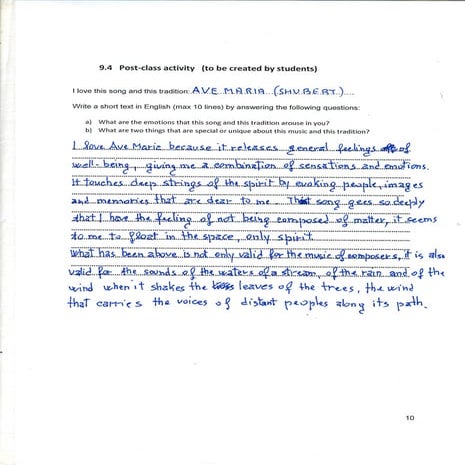 9.4 Post-class activity (to be created by students)
I love this song and this tradition: AVE MARIA (SHUBERT)....
Write a short text in English (max 10 lines) by answering the following questions:
a) What are the emotions that this song and this tradition arouse in you?
b) What are two things that are special or unique about this music and this tradition?
I love Ave Maria because it releases general feelings of
well-being, giving me a combination of sensations and emotions.
It touches deep strings of the spirit by evoking people, images
and memories that are dear to me. That song goes so deeply
that I have the feeling of not being composed of matter, it seems
to me to float in the space, only spirit.
What has been above is not only valid for the music of composers, it is also
valid for the sounds of the waters of a stream, of the rain and of the
wind when it shakes the leaves of the trees, the wind
that carries the voices of distant peoples along its path.
10